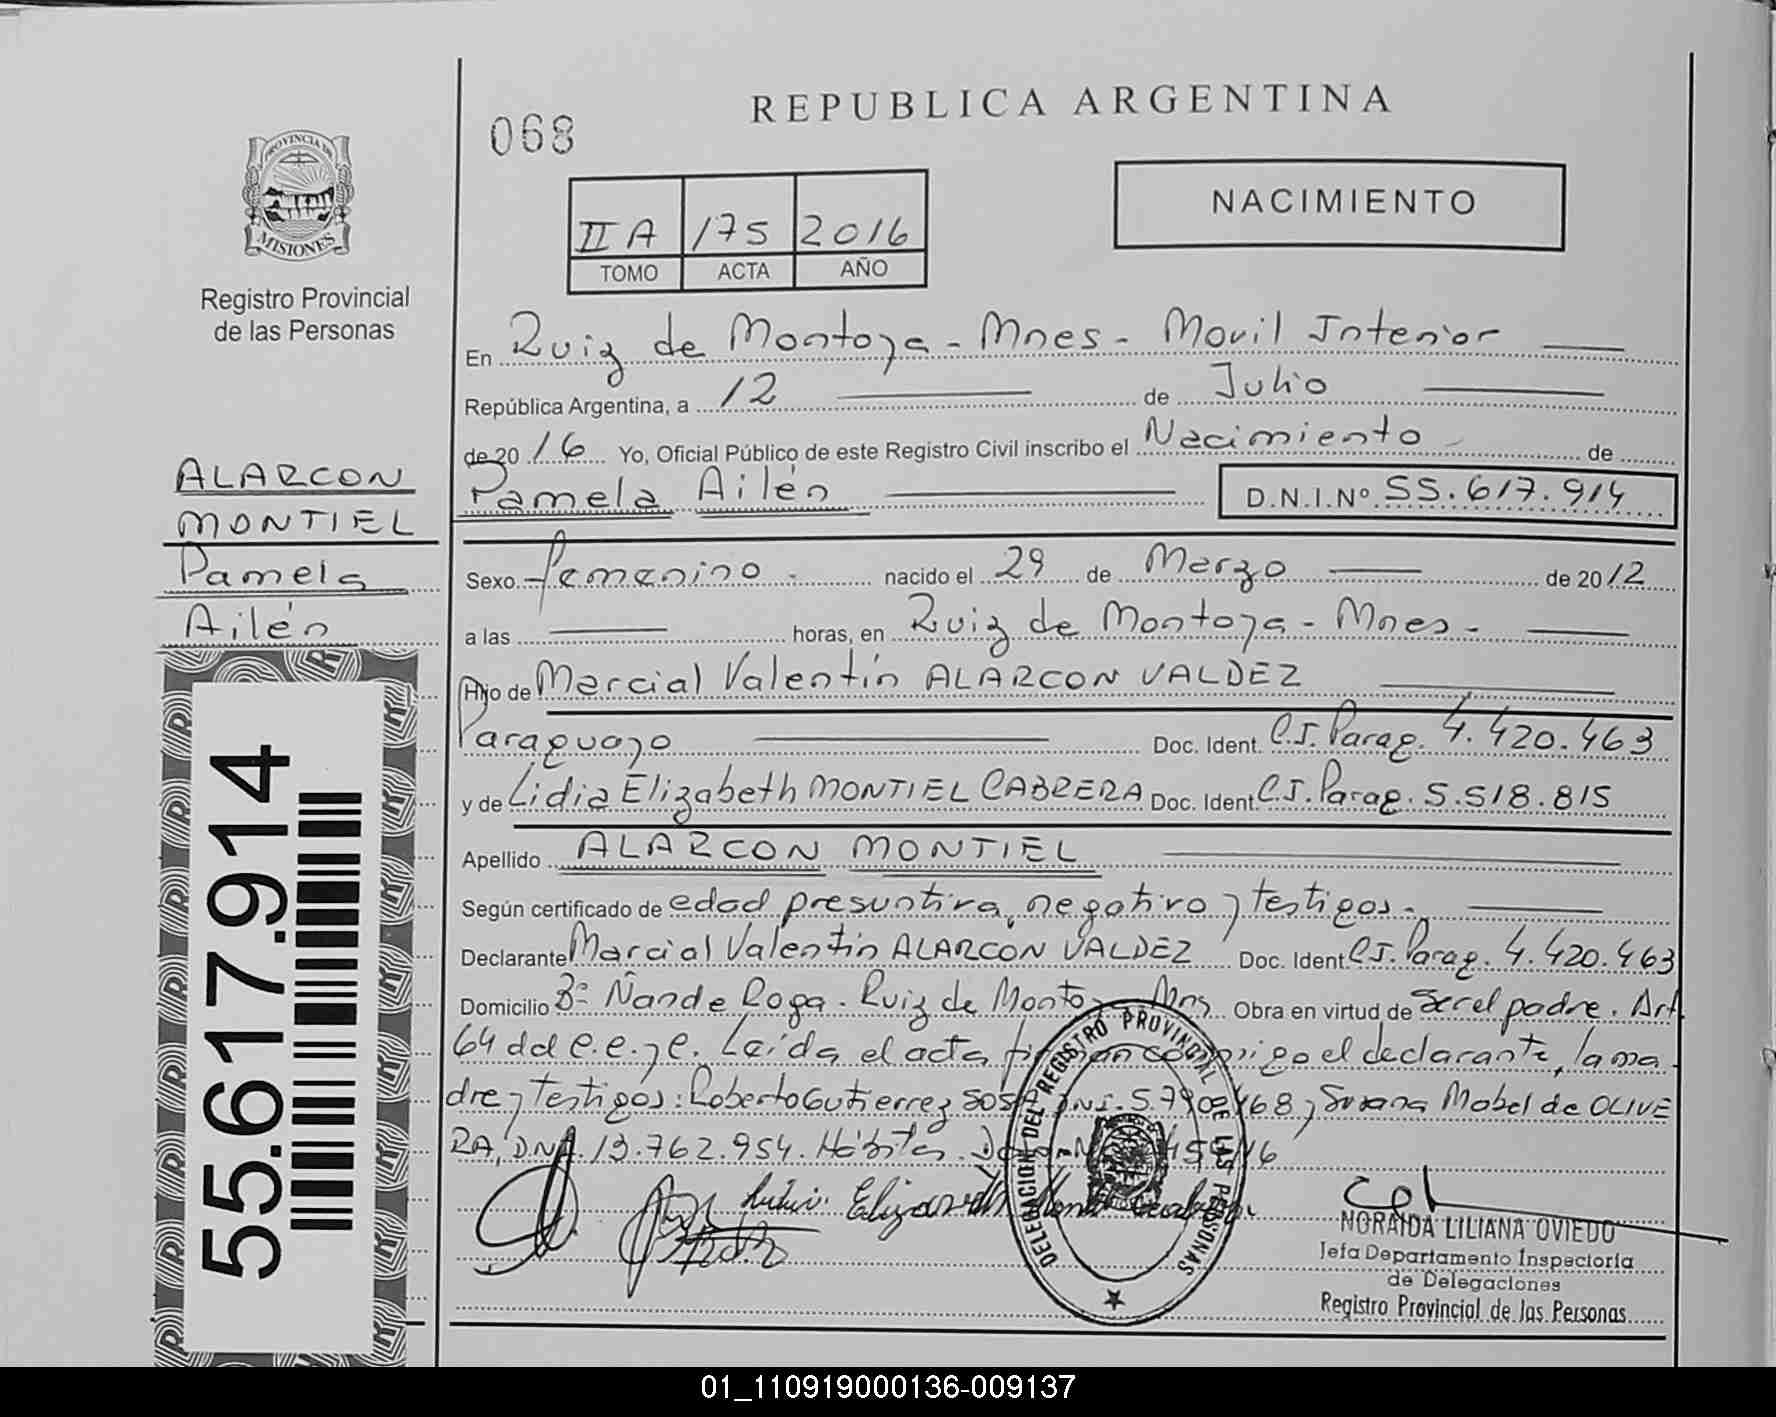 REPUBLICA ARGENTINA
068
PROVINCIA DE
MISIONES
Registro Provincial
de las Personas
NACIMIENTO
II A 175 2016
TOMO ACTA AÑO
En Ruiz de Montoya - Mnes - Movil Interior
República Argentina, a 12 de Julio
de 20 16 Yo, Oficial Público de este Registro Civil inscribo el Nacimiento de
Pamela Ailén D.N.I.Nº 55.617.914
ALARCON
MONTIEL
Pamela
Ailén
Sexo femenino nacido el 29 de Marzo de 2012
a las horas, en Ruiz de Montoya - Mnes -
Hijo de Marcial Valentín ALARCON VALDEZ
Paraguayo Doc. Ident. C.I. Parag. 4.420.463
y de Lidia Elizabeth MONTIEL CABRERA Doc. Ident. C.I. Parag. 5.518.815
Apellido ALARCON MONTIEL
Según certificado de edad presuntiva, negativo y testigos -
Declarante Marcial Valentín ALARCON VALDEZ Doc. Ident. C.I. Parag. 4.420.463
Domicilio Bº Ñande Roga. Ruiz de Monto Mns. Obra en virtud de Ser el padre. Art.
64 del C.C. y C. Leída el acta firman conmigo el declarante, la ma
dre y testigos: Roberto Gutierrez SOSA DNI. 5.790.468 y Susana Mabel de OLIVE
RA, DNI. 13.762.954. Hábita.
55.617.914
DELEGACION DEL REGISTRO PROVINCIAL DE LAS PERSONAS
NORAIDA LILIANA OVIEDO
Jefa Departamento Inspectoría
de Delegaciones
Registro Provincial de las Personas
01_110919000136-009137